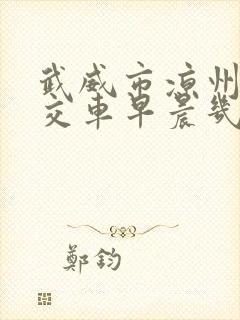 武威市凉州
交车早晨几
鄭鈞